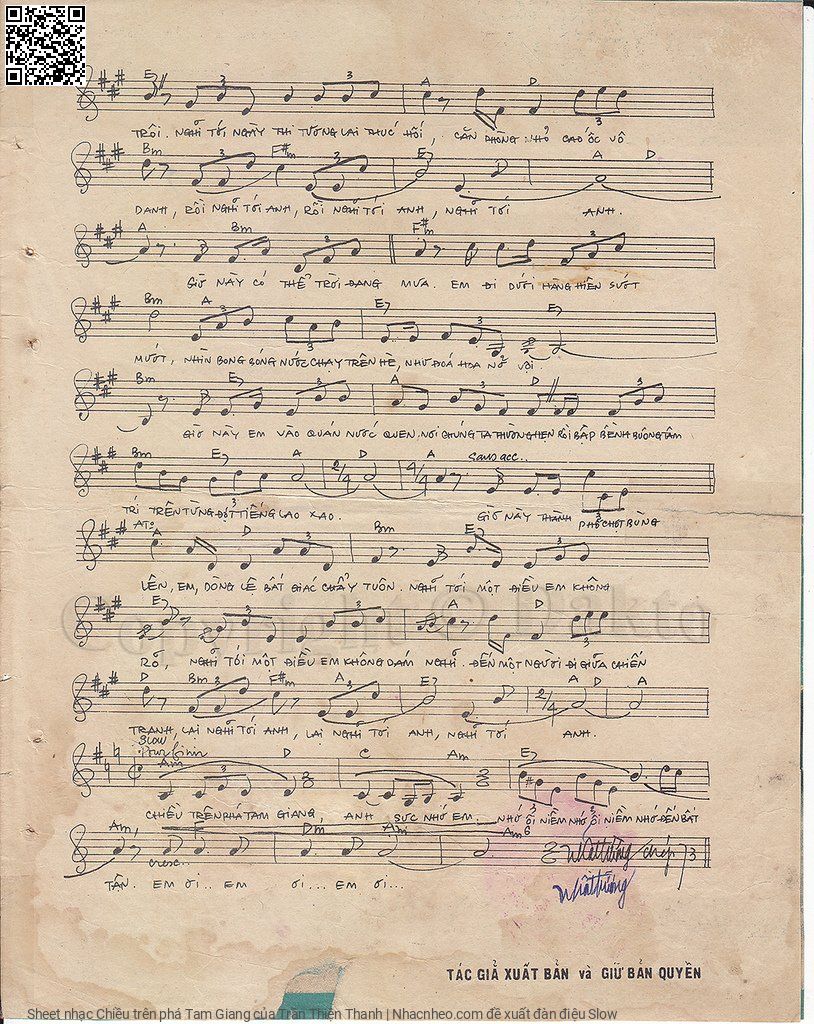 E7 A D
TRÔI. NGHĨ TỚI NGÀY THI TƯƠNG LAI THÚC HỐI, CĂN PHÒNG NHỎ CAO ỐC VÔ
Bm F#m E7 A D
DANH, RỒI NGHĨ TỚI ANH, RỒI NGHĨ TỚI ANH, NGHĨ TỚI ANH.
A Bm F#m
GIỜ NÀY CÓ THỂ TRỜI ĐANG MƯA. EM ĐI DƯỚI HÀNG HIÊN SƯỚT
Bm A E7 E7
MƯỚT, NHÌN BONG BÓNG NƯỚC CHẠY TRÊN HÈ, NHƯ ĐOÁ HOA NỞ VỘI.
Bm E7 A D
GIỜ NÀY EM VÀO QUÁN NƯỚC QUEN, NƠI CHÚNG TA THƯỜNG HẸN RỒI BẬP BỀNH BUÔNG TÂM
Bm E7 A D A
TRÍ TRÊN TỪNG ĐỢT TIẾNG LAO XAO. GIỜ NÀY THÀNH PHỐ CHỢT BÙNG
A To D Bm E7
LÊN, EM, DÒNG LỆ BẤT GIÁC CHẢY TUÔN. NGHĨ TỚI MỘT ĐIỀU EM KHÔNG
E7 A D
RÕ, NGHĨ TỚI MỘT ĐIỀU EM KHÔNG DÁM NGHĨ. ĐẾN MỘT NGƯỜI ĐI GIỮA CHIẾN
D Bm F#m A E7 A D A
TRANH, LẠI NGHĨ TỚI ANH, LẠI NGHĨ TỚI ANH, NGHĨ TỚI ANH.
Slow
Pour finir
Am D C Am E7
CHIỀU TRÊN PHÁ TAM GIANG, ANH SỰC NHỚ EM. NHỚ ÔI NIỀM NHỚ ÔI NIỀM NHỚ ĐẾN BẤT
Am, Dm Am Am6
cresc..
TẬN. EM ƠI.. EM ƠI... EM ƠI...
Nhật Trường chép 73
Nhật Trường
TÁC GIẢ XUẤT BẢN và GIỮ BẢN QUYỀN
Copyright © Dakto
Sheet nhạc Chiều trên phá Tam Giang của Trần Thiện Thanh | Nhacnheo.com đề xuất đàn điệu Slow